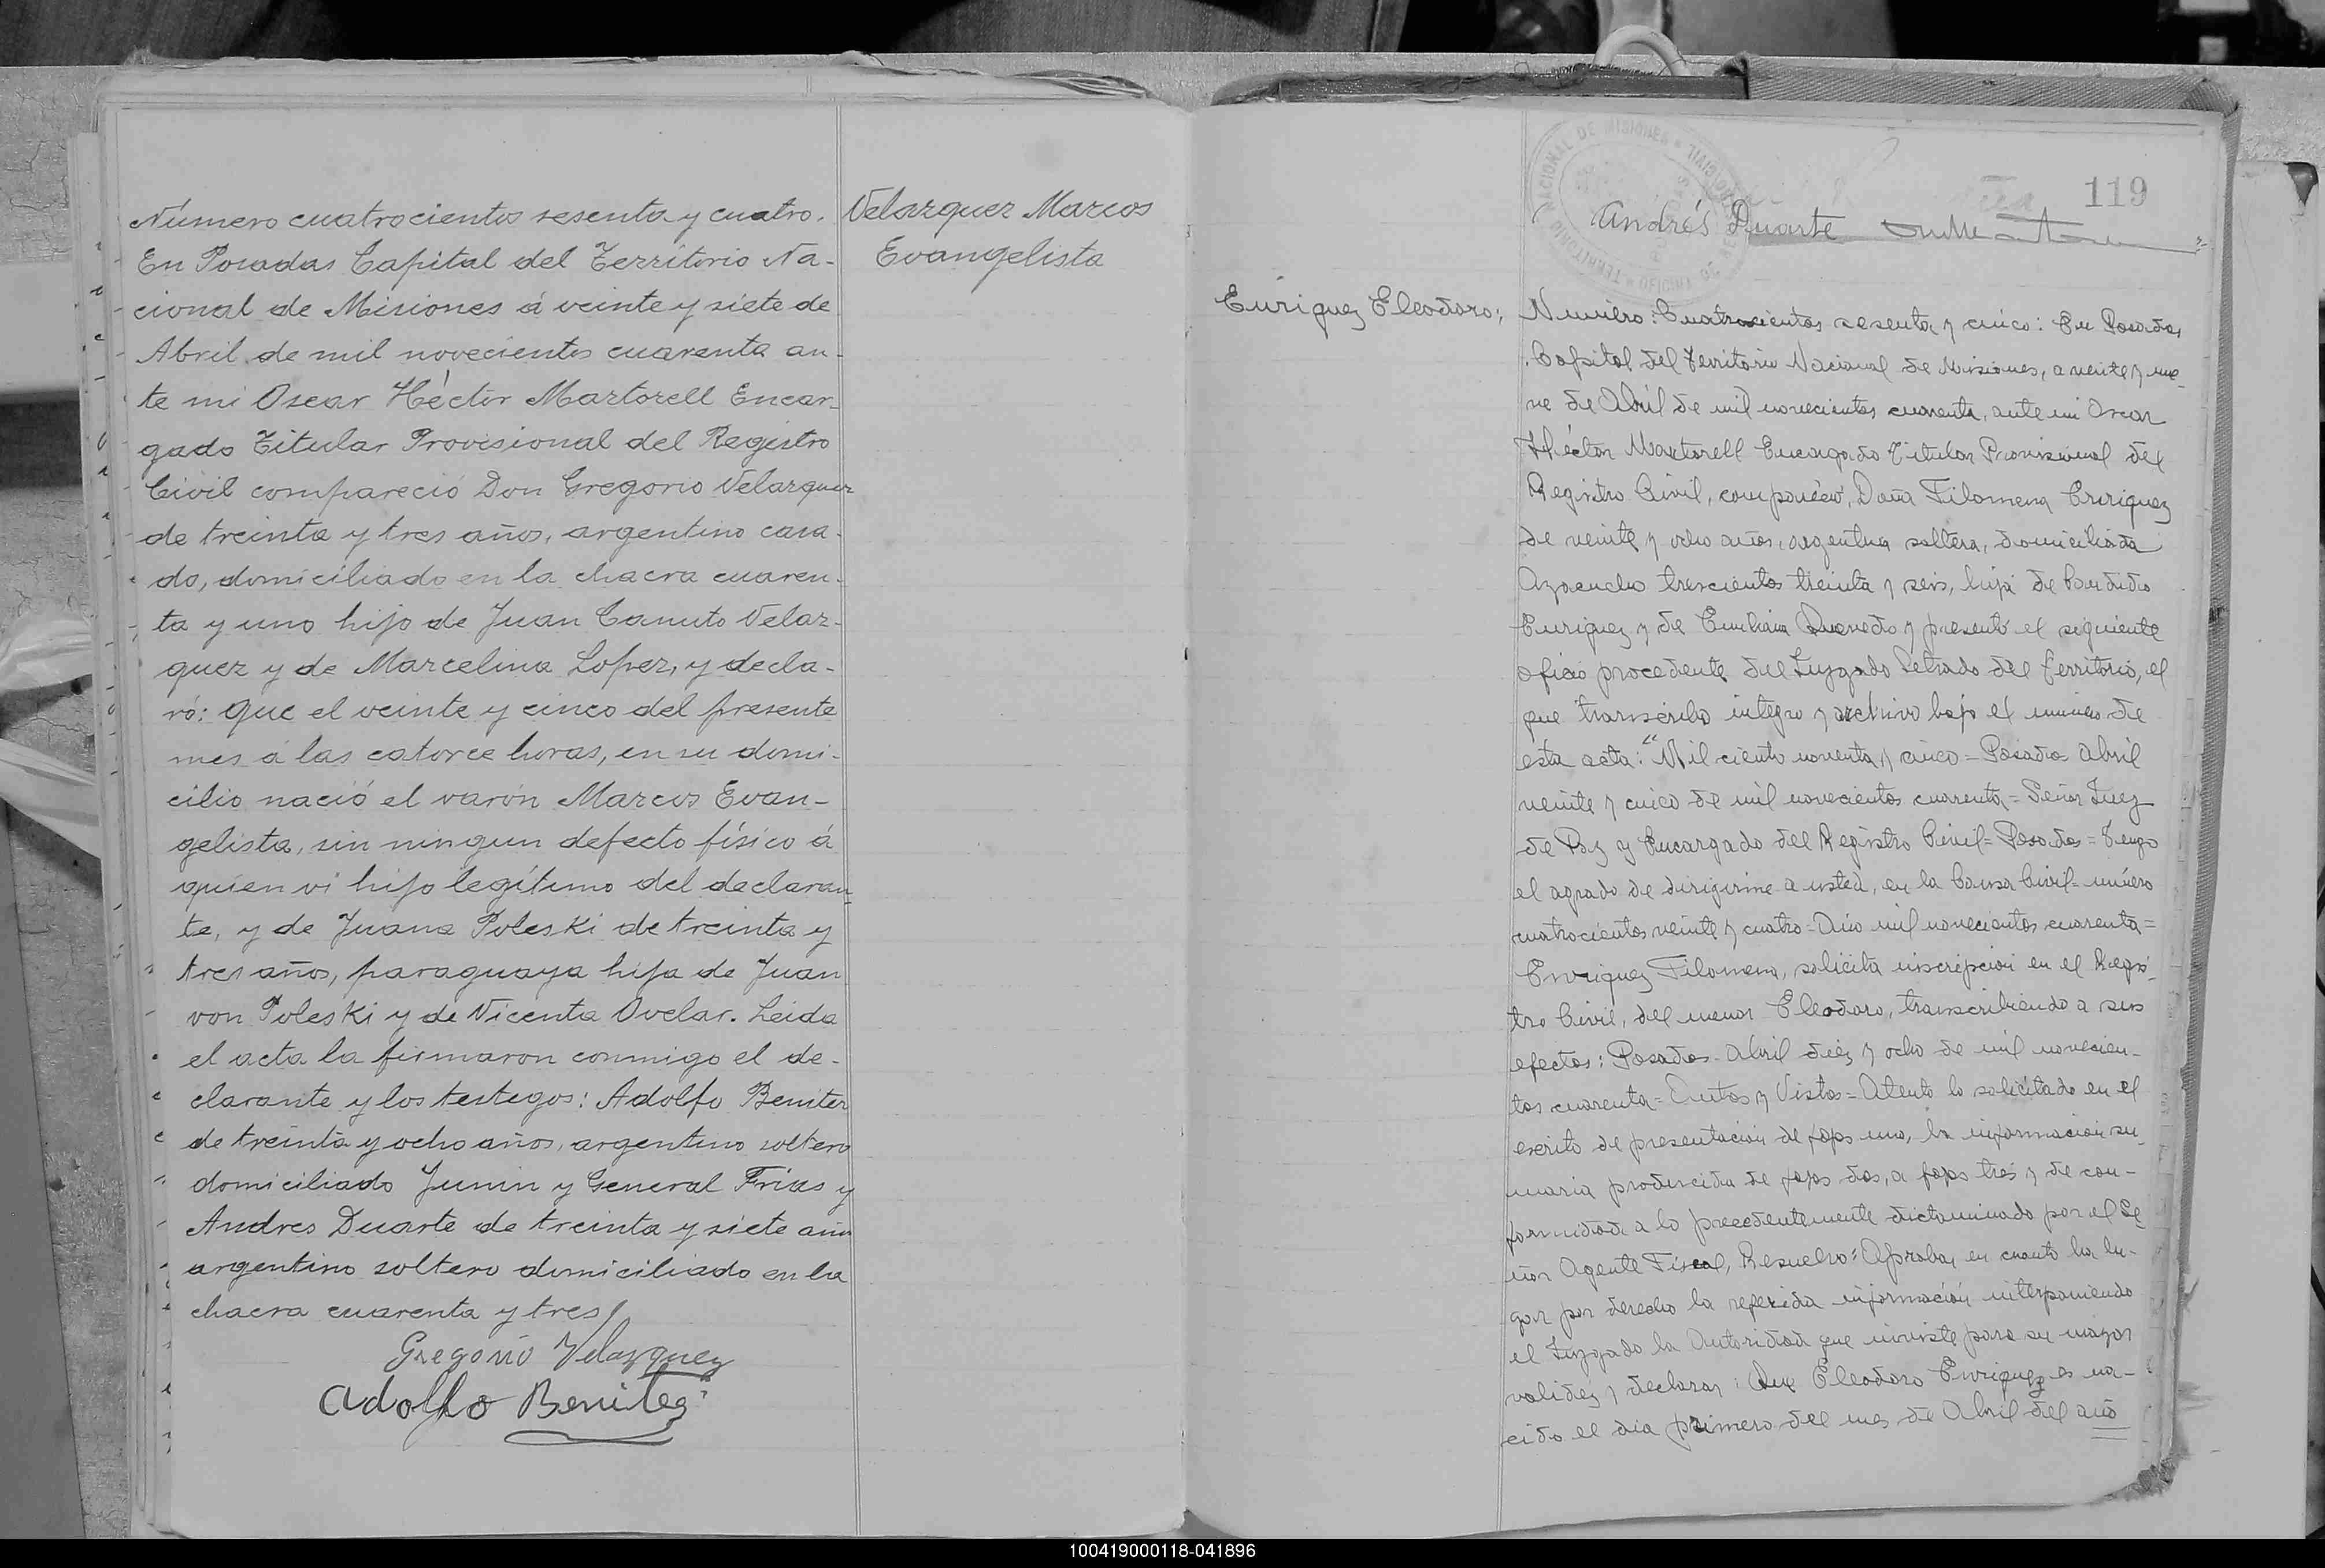 Número cuatrocientos sesenta y cuatro.
En Posadas Capital del Territorio Na-
cional de Misiones á veinte y siete de
Abril de mil novecientos cuarenta an-
te mi Oscar Héctor Martorell Encar-
gado Titular Provisional del Registro
Civil compareció Don Gregorio Velazquez
de treinta y tres años, argentino casa-
do, domiciliado en la chacra cuaren-
ta y uno hijo de Juan Canuto Velaz-
quez y de Marcelina Lopez, y decla-
ró: Que el veinte y cinco del presente
mes á las catorce horas, en su domi-
cilio nació el varón Marcos Evan-
gelista, sin ningun defecto físico á
quien vi hijo legítimo del declaran-
te, y de Juana Poleski de treinta y
tres años, paraguaya hija de Juan
von Poleski y de Vicenta Ovelar. Leida
el acta la firmaron conmigo el de-
clarante y los testigos: Adolfo Benitez
de treinta y ocho años, argentino soltero
domiciliado Junin y General Frias y
Andres Duarte de treinta y siete años
argentino soltero domiciliado en la
chacra cuarenta y tres
Gregorio Velazquez
Adolfo Benitez
Velazquez Marcos
Evangelista
119
Andrés Duarte
Enriquez Eleodoro:
Numero: Cuatrocientos sesenta y cinco: En Posadas
Capital del Territorio Nacional de Misiones, a veinte y nue-
ve de Abril de mil novecientos cuarenta, ante mi Oscar
Héctor Martorell Encargado Titular Provisional del
Registro Civil, compareció, Doña Filomena Enriquez
de veinte y ocho años, argentina soltera, domiciliada
Ayacucho trescientos treinta y seis, hija de Candido
Enriquez y de Emiliana Quevedo y presentó el siguiente
oficio procedente del Juzgado Letrado del Territorio, el
que transcribo integro y archivo bajo el numero de
esta acta: "Mil ciento noventa y cinco = Posadas Abril
veinte y cinco de mil novecientos cuarenta = Señor Juez
de Paz y Encargado del Registro Civil = Posadas = Tengo
el agrado de dirigirme a usted, en la Causa Civil - número
cuatrocientos veinte y cuatro - Año mil novecientos cuarenta =
Enriquez Filomena, solicita inscripción en el Regis-
tro Civil, del menor Eleodoro, transcribiendo a sus
efectos: Posadas - Abril diez y ocho de mil novecien-
tos cuarenta = Autos y Vistos = Atento lo solicitado en el
escrito de presentación de fojas una, la información su-
maria producida de fojas dos, a fojas tres y de con-
formidad a lo precedentemente dictaminado por el Se-
ñor Agente Fiscal, Resuelvo: Aprobar en cuanto ha lu-
gar por derecho la referida información interponiendo
el Juzgado la Autoridad que inviste para su mayor
validez y declarar: Que Eleodoro Enriquez es na-
cido el dia primero del mes de Abril del año
100419000118-041896